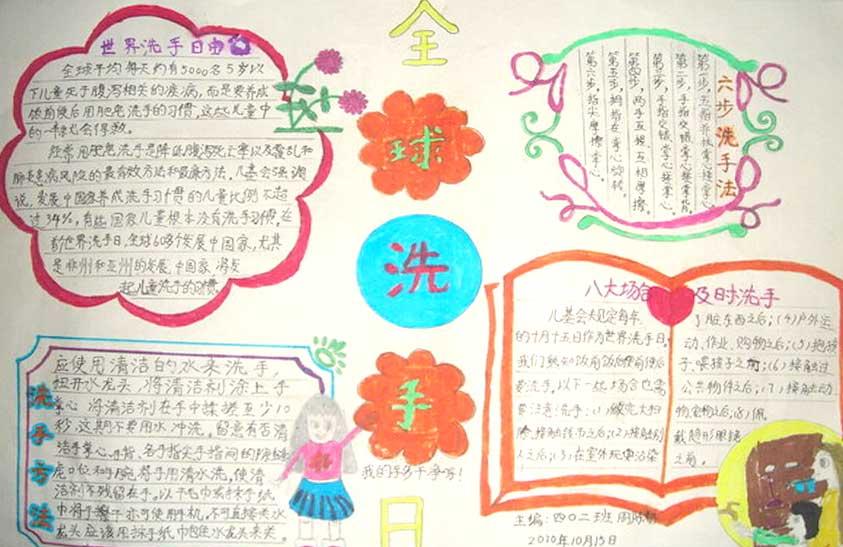 全
球
洗
手
日
世界洗手日
全球平均每天约有5000名5岁以
下儿童死于腹泻相关的疾病,而是要养成
饭前便后用肥皂洗手的习惯,这些儿童中
的一半就会得救。
经常用肥皂洗手是降低腹泻死亡率以及霍乱和
病风险的最有效方法和最廉方法。儿基会强调
说,发展中国家养成洗手习惯的儿童比例不超
过34%,有些国家儿童根本没有洗手习惯。在
世界洗手日,全球60多个发展中国家,尤其
是非州和亚州的发展中国家,将发
起儿童洗手的习惯
六步洗手法
第一步,五指并拢掌心接掌心
第二步,手指交错掌心接掌背,
第三步,手指交错掌心接掌心。
第四步,两手互搓互相摩擦,
第五步,拇指在掌心旋转,
第六步,指尖摩擦掌心。
洗手方法
应使用清洁的水来洗手,
扭开水龙头,将清洁剂涂上手
掌心,将清洁剂在手中揉搓至少10
秒,这期不要用水冲洗。留意有否清
洁手掌心、手指、各手指尖手指间的
虎口位和手腕,将手用清水洗,使清
洁剂不残留在手。以干毛巾或抹手纸
巾将手擦干亦可使用手机,不可直接关水
龙头应该用抹手纸巾包住水龙头来关。
我的手多干净呀!
八大场合及时洗手
儿基会规定每年
的十月十五日作为世界洗手日,
我们熟知饭前饭后便前便后
要洗手。以下一些场合也需
要注意洗手:(1)做完大扫
除,接触钱币之后;(2)接触别
人之后;(3)在室外玩串沾染
了脏东西之后;(4)户外运
动、作业、购物之后;(5)抱孩
子、喂孩子之前;(6)接触过
公共物件之后;(7)接触动
物宠物之后;(8)佩
戴隐形眼镜
之前。
主编:四0二班
2010年10月15日